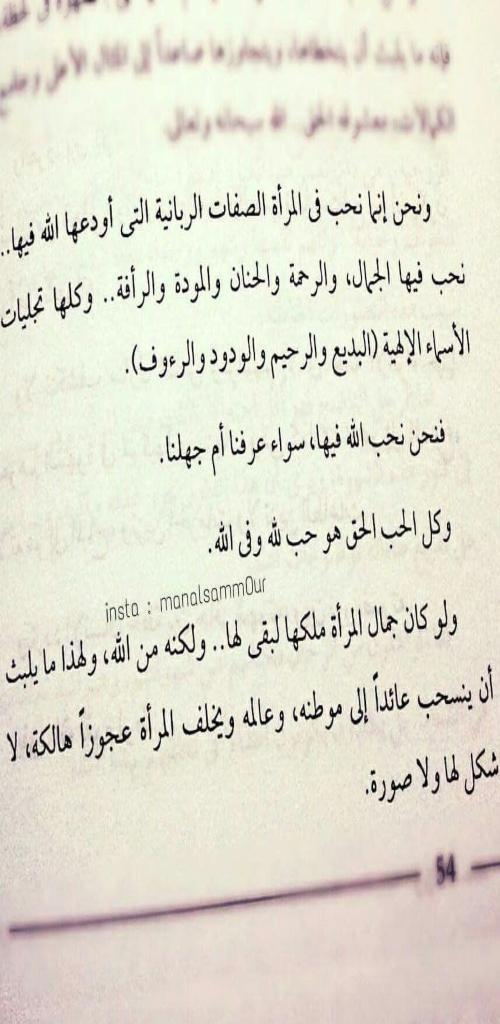 فإنه ما يلبث أن يتخطاها، ويتجاوزها صاعداً إلى المثال الأعلى وجامع
الكمالات، معشوقه الحق.. الله سبحانه وتعالى.
ونحن إنما نحب فى المرأة الصفات الربانية التى أودعها الله فيها..
نحب فيها الجمال، والرحمة والحنان والمودة والرأفة.. وكلها تجليات
الأسماء الإلهية (البديع والرحيم والودود والرءوف).
فنحن نحب الله فيها، سواء عرفنا أم جهلنا.
وكل الحب الحق هو حب لله وفى الله.
insta : manalsamm0ur
ولو كان جمال المرأة ملكها لبقى لها.. ولكنه من الله، ولهذا ما يلبث
أن ينسحب عائداً إلى موطنه، وعالمه ويخلف المرأة عجوزاً هالكة، لا
شكل لها ولا صورة.
54